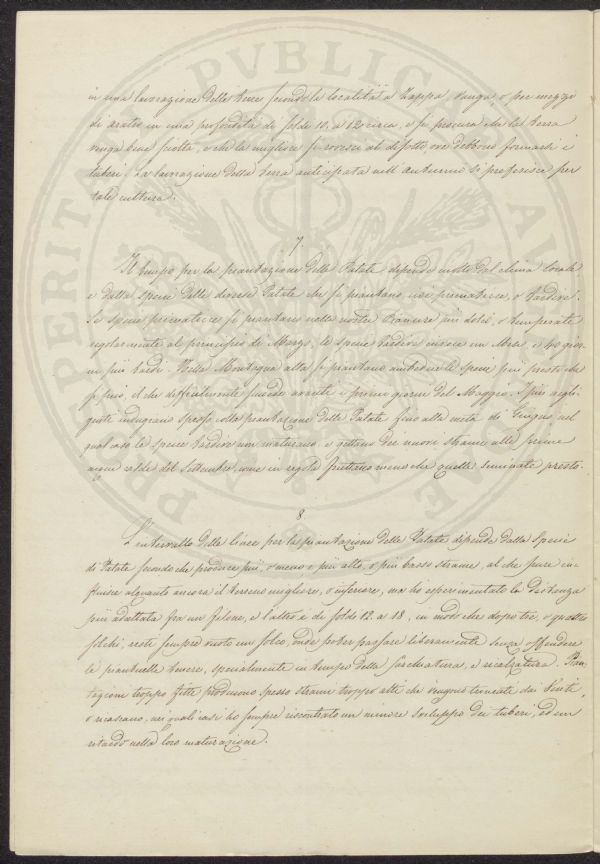 in una lavorazione della terra secondo le località a Zappa, vanga, o per mezzo
di aratro in una profondità di soldi 10, a 12 circa, e si procura che la terra
venga bene sciolta, e che la migliore si rovesci al disotto ove debbono formarsi i
tuberi. La lavorazione della terra anticipata nell'autunno si preferisce per
tale cultura.
7.
Il tempo per la piantazione delle Patate dipende molto dal clima locale
e dalle specie delle diverse Patate che si piantano cioè primaticcie, o tardive.
Le specie primaticcie si piantano nelle nostre Pianure più dolci, e temperate
regolarmente al principio di Marzo, le specie tardive invece un Mese, e più gior-
ni più tardi. Nelle Montagne alte si piantano ambedue le specie più presto che
si può, il che difficilmente succede avanti i primi giorni del Maggio. I più negli-
genti indugiano spesso colla piantazione delle Patate fino alla metà di Giugno, nel
qual caso le specie tardive non maturano, e gettano dei nuovi strami alle prime
acque calde del Settembre, come in regola fruttano meno che quelle seminate presto.
8
L'intervallo delle linee per la piantazione delle Patate dipende dalla specie
di Patate secondo che produce più, o meno e più alto, o più basso strame, al che pure in-
fluisce alquanto ancora il terreno migliore, o inferiore, ma ho esperimentato la distanza
più adattata fra un filone, e l'altro è di soldi 12. a 18, in modo che dopo tre, o quattro
solchi, resti sempre vuoto un solco, onde poter passare liberamente senza offendere
le pianticelle tenere, specialmente in tempo della sarchiatura, e rincalzatura. Pian-
tagioni troppo fitte producono spesso strami troppo alti che vengono troncate dai Venti,
o ricascano, nei quali casi ho sempre riscontrato un minore sviluppo dei tuberi, ed un
ritardo nella loro maturazione.
PERITAT PVBLICA